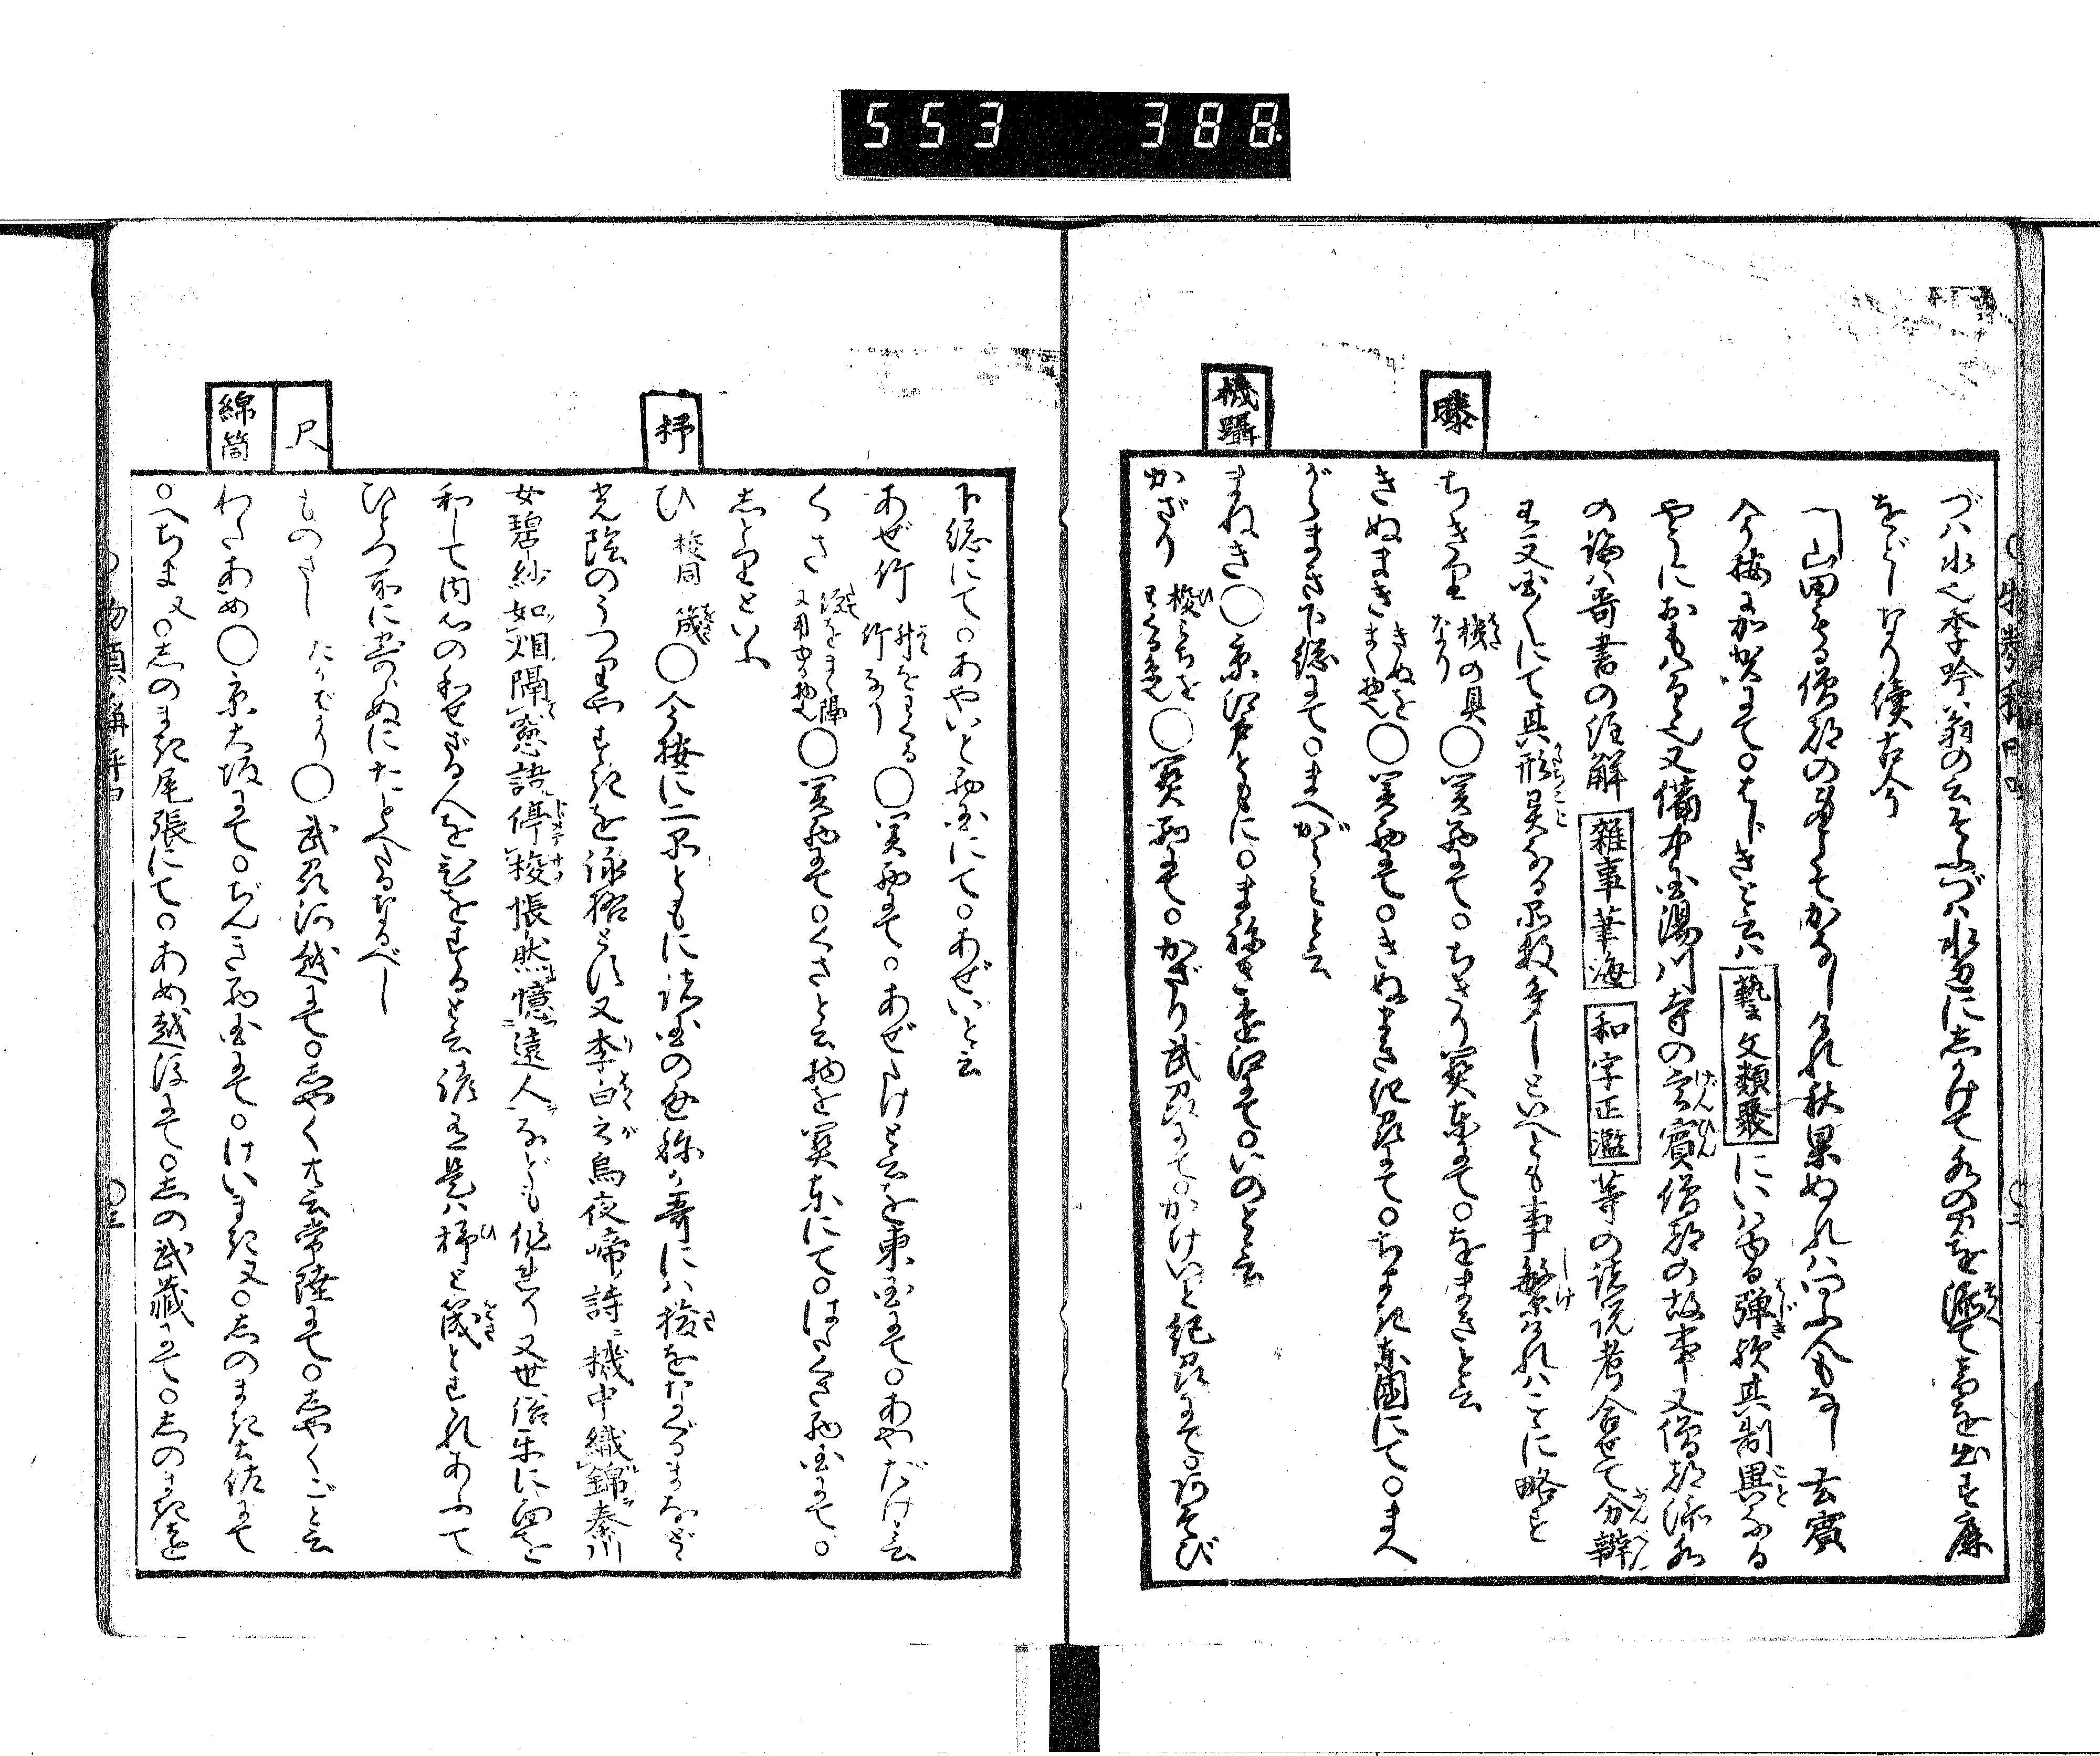 553 388
づハ水也季吟翁の云そふづハ水辺にしかけて水の力を添て音を出す庭
をどしなり續古今
〽山田もる僧都の身こそかなしけれ秋果ぬれハ問ふ人もなし 玄賓
今按に加賀にて○はじきと云ハ藝文類聚にいハゆる弾歟其制異なる
やうにおもハる也又備中国湯川寺の玄賓僧都の故事又僧都添水
の論ハ哥書の註解雜事筆海和字正濫等の諸説考合せて分辨
す又国〻にて其形異なる名数多しといへとも事繁けれハこゝに略す
ちきり 機の具なり ○関西にて○ちきり関東にて○をまきと云
きぬまき きぬをまく物也 ○関西にて○きぬまき紀州にて○ちまき東國にて○まへ
がらまき下総にて○まへがらと云
機躡
滕
まねき ○京江戸ともに○まねき遠江にて○いのと云
かざり 梭みちをわくる糸也 ○関西にて○かざり武州にて○かけいと紀州にて○あそび
下総にて○あやいと西国にて○あぜいと云
あぜ竹 升をわくる竹なり ○関西にて○あぜたけと云を東国にて○あやだけと云
くさ ○関西にて○くさと云物を関東にて○はたくさ西国にて○
しとりといふ
杼
ひ 梭同 筬 ○今按に二名ともに諸国の通称か哥にハ梭をなぐるまなど
光陰のうつりやすきを詠格とす又李白之烏夜啼詩ニ機中織錦秦川
女碧紗如烟隔窓語停梭悵然憶遠人なども作れり又世俗常に面を
和して内心の和せざる人を ひをするとと云諺有是ハ杼と筬とすれあふて
ひとつ所に出あハぬにたとへたるなるべし
尺
ものさし たかばかり ○武州河越にて○しやく共云常陸にて○しやくごと云
綿筒
わたあめ ○京大坂にて○ぢんき西国にて○けいまき又○しのまき土佐にて
○へちま又○しのまき尾張にて○あめ越後にて○しの武藏にて○しのまきと